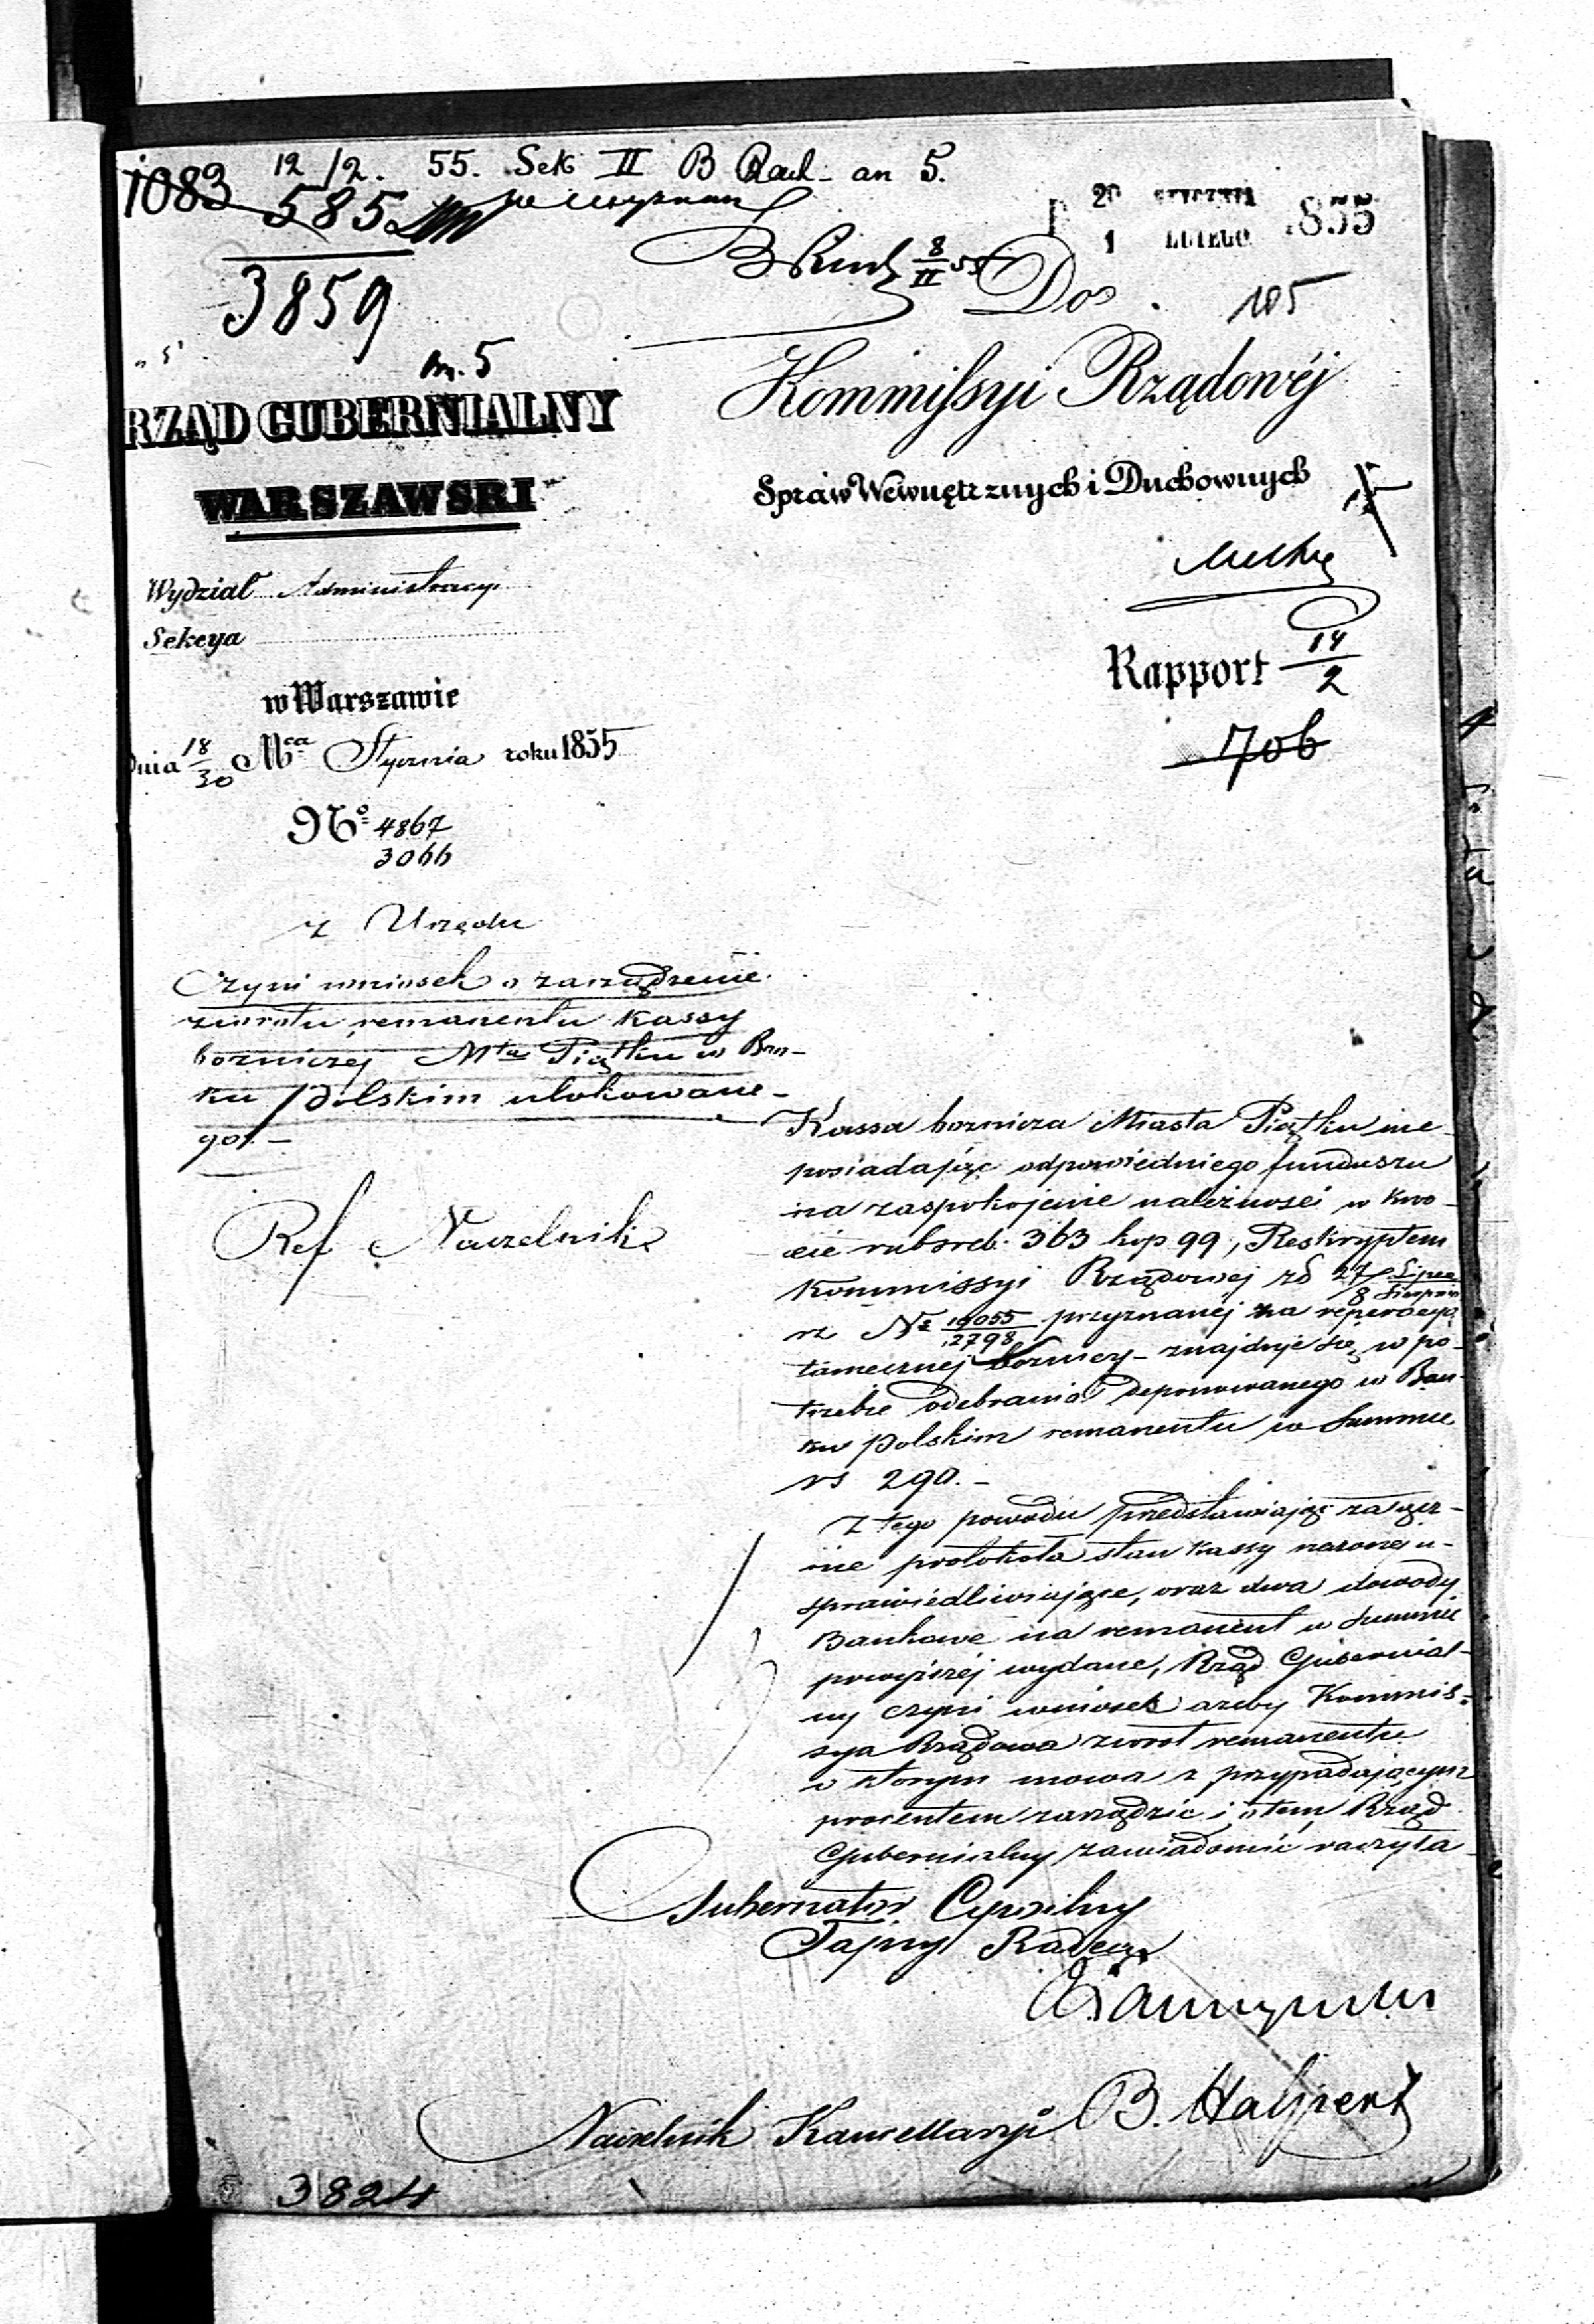 12/2. 55. Sek II B Rad - an 5.
1083 585
3859
20 STYCZNIA
1 LUTEGO 1855
8/II 55
Do
105
nr. 5
RZĄD GUBERNIALNY
WARSZAWSKI
Kommissyi Rządowéj
Spraw Wewnętrznych i Duchownych
Wydział Administracyi
Sekcya
Rapport 14/2
706
w Warszawie
Dnia 18/30 Mca Stycznia roku 1855
No 4867
3066
z Urzędu
Czyni wniosek o zarządzenie
zwrotu remanentu kassy
bożniczej Mta Piątku w Ban-
ku Polskim ulokowane-
go.-
Ref Naczelnik
Kassa bożnicza Miasta Piątku nie
posiadając odpowiedniego funduszu
na zaspokojenie należności w kwo-
cie rubsreb. 363 kop 99, Reskryptem
Kommissyi Rządowej zd 27 Lipca / 8 Sierpnia
rz No 19055/2798 przyznanej na reperacyą
tamecznej bożnicy - znajduje się w po-
trzebie odebrania deponowanego w Ban-
ku Polskim remanentu w Summie
rs 290.-
Z tego powodu przedstawiając załącz-
nie protokóła stan kassy rzeczonej u-
sprawiedliwiające, oraz dwa dowody
Bankowe na remanent w Summie
powyższéj wydane, Rząd Gubernial-
ny czyni wniosek ażeby Kommis-
sya Rządowa zwrot remanentu
o którym mowa z przypadającym
procentem zarządzić i o tem Rząd
Gubernialny zawiadomić raczyła
Gubernator Cywilny
Tajny Radca
Naczelnik Kancellaryi B. Halpert
3824